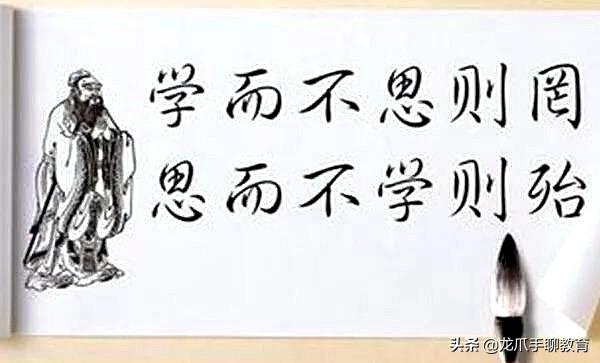 学而不思则罔
思而不学则殆
头条 @龙爪手聊教育